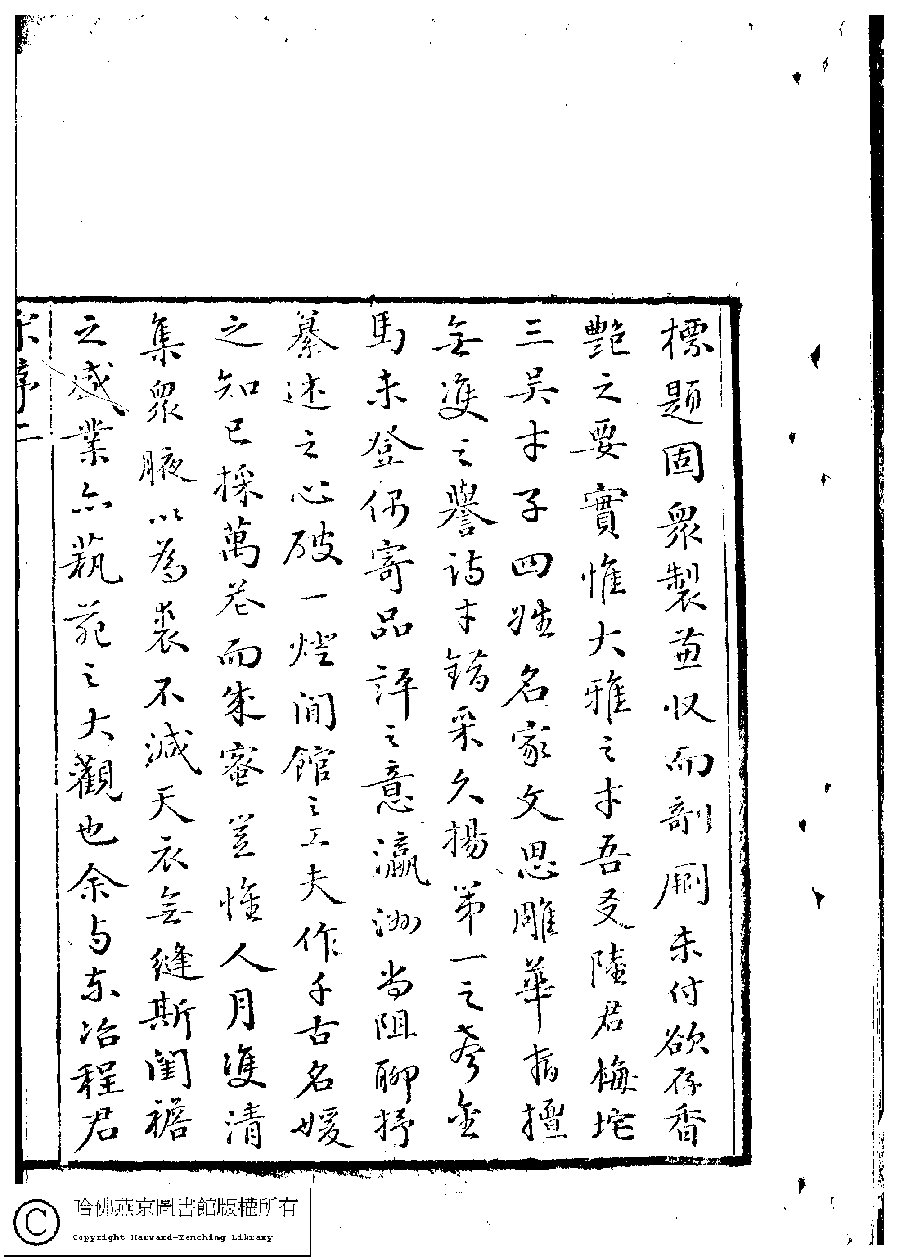 標題固衆製並収而剞劂未付欲存香
艷之要實惟大雅之才吾友陸君梅垞
三吴才子四姓名家文思雕華指擅
無雙之譽詩才錯采久揚第一之夸金
馬未登偶寄品評之意瀛洲尚阻聊抒
纂述之心破一燈間館之工夫作千古名媛
之知已採萬卷而成蜜豈惟人月雙清
集衆腋以為裘不減天衣無縫斯閨襜
之盛業亦蓺苑之大觀也余与東冶程君
序二
哈佛燕京圖書館版權所有
Copyright Harvard-Yenching Library